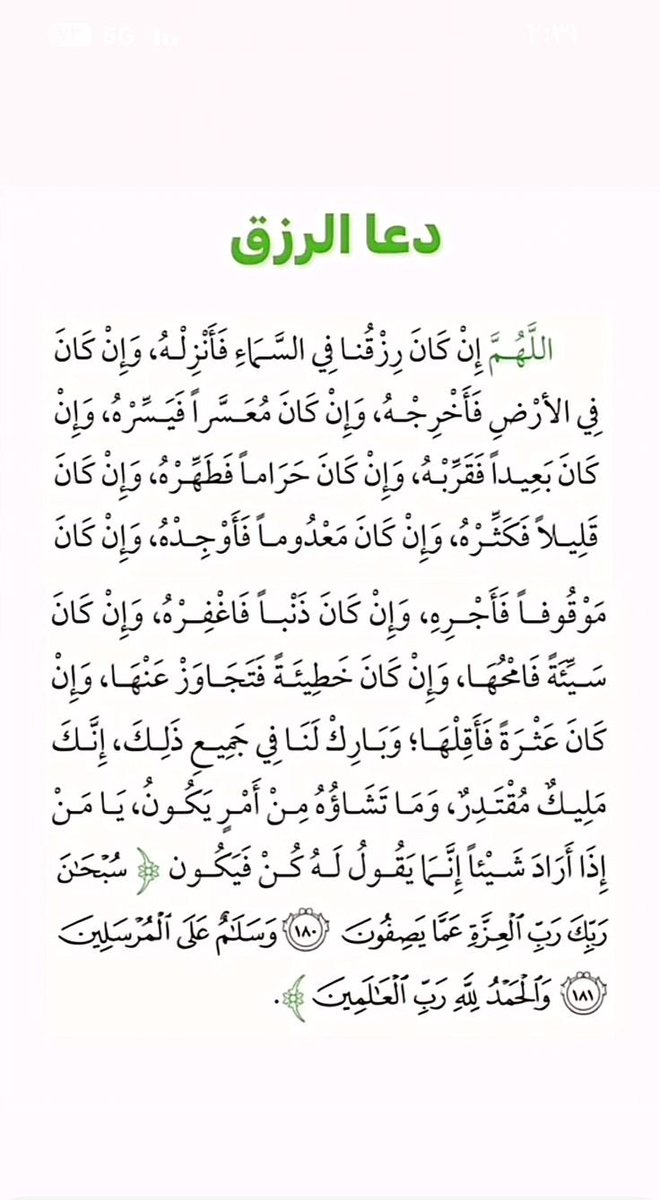 دعا الرزق
اللَّهُمَّ إِنْ كَانَ رِزْقُنا فِي السَّمَاءِ فَأَنْزِلْهُ، وَإِنْ كَانَ
فِي الأرْضِ فَأَخْرِجْهُ، وَإِنْ كَانَ مُعَسَّراً فَيَسِّرْهُ، وَإِنْ
كَانَ بَعِيداً فَقَرِّبْهُ، وَإِنْ كَانَ حَرَاماً فَطَهِّرْهُ، وَإِنْ كَانَ
قَلِيلاً فَكَثِّرْهُ، وَإِنْ كَانَ مَعْدُوماً فَأَوْجِدْهُ، وَإِنْ كَانَ
مَوْقُوفاً فَأَجْرِهِ، وَإِنْ كَانَ ذَنْباً فَاغْفِرْهُ، وَإِنْ كَانَ
سَيِّئَةً فَامْحُهَا، وَإِنْ كَانَ خَطِيئَةً فَتَجَاوَزْ عَنْهَا، وَإِنْ
كَانَ عَثْرَةً فَأَقِلْهَا؛ وَبَارِكْ لَنَا فِي جَمِيعِ ذَلِكَ، إِنَّكَ
مَلِيكٌ مُقْتَدِرٌ، وَمَا تَشَاؤُهُ مِنْ أَمْرٍ يَكُونُ، يَا مَنْ
إِذَا أَرَادَ شَيْئاً إِنَّمَا يَقُولُ لَهُ كُنْ فَيَكُون ﴿ سُبْحَٰنَ
رَبِّكَ رَبِّ ٱلْعِزَّةِ عَمَّا يَصِفُونَ ١٨٠ وَسَلَٰمٌ عَلَى ٱلْمُرْسَلِينَ
١٨١ وَٱلْحَمْدُ لِلَّهِ رَبِّ ٱلْعَٰلَمِينَ ﴾.